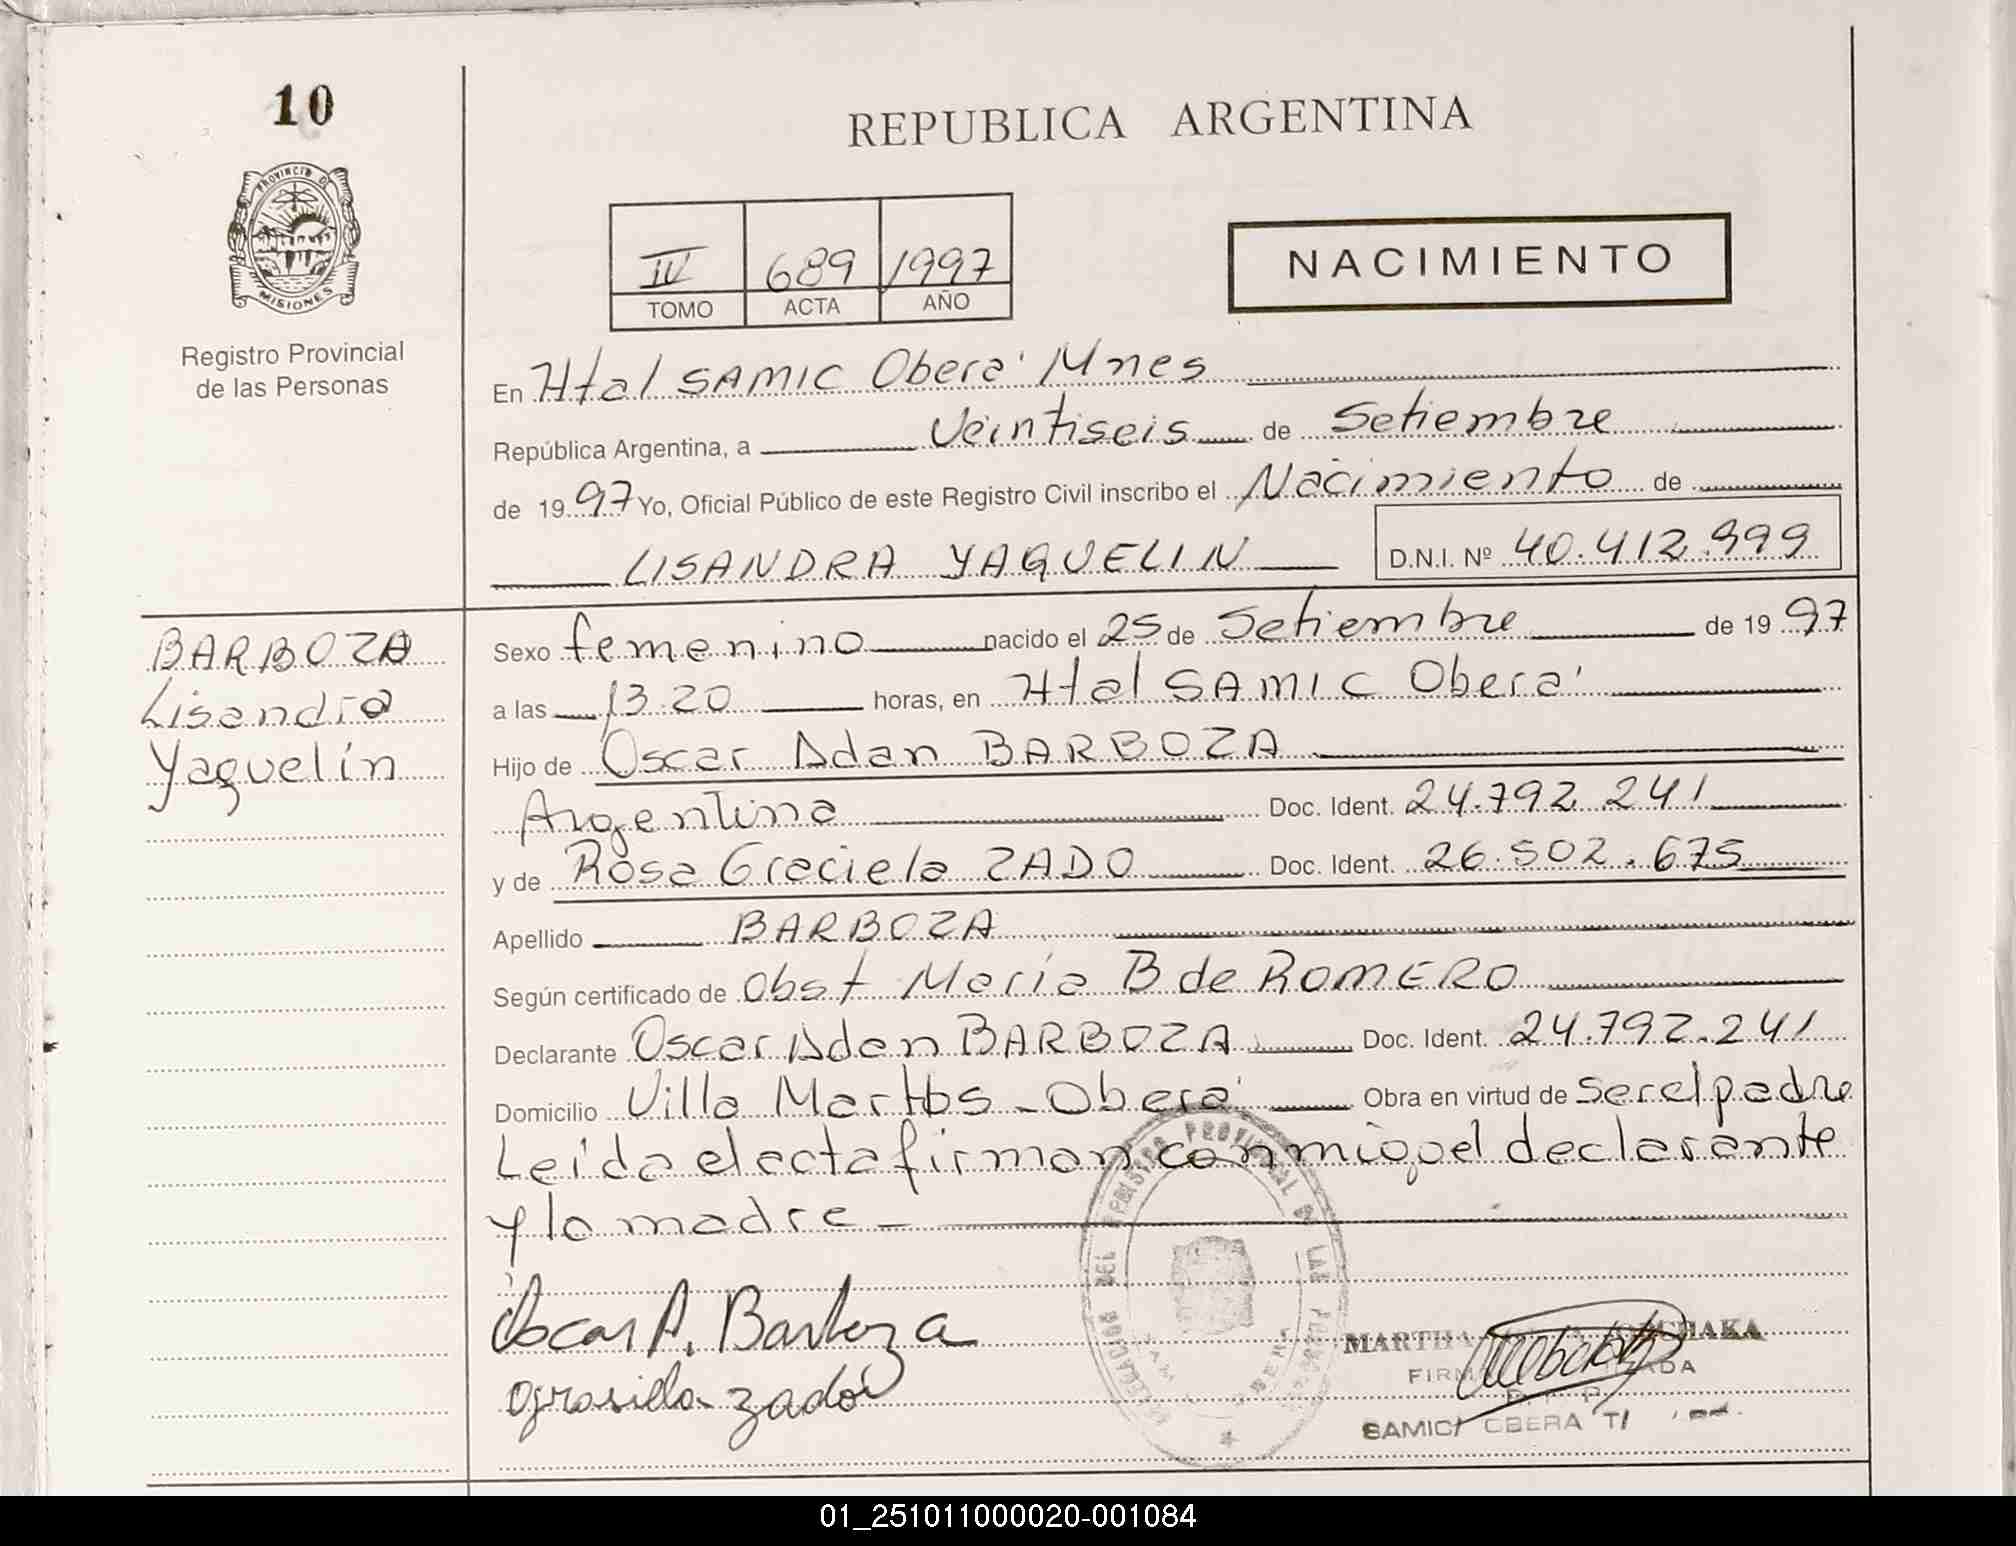 10
REPUBLICA ARGENTINA
PROVINCIA D
MISIONES
Registro Provincial
de las Personas
IV 689 1997
TOMO ACTA AÑO
NACIMIENTO
En Htal SAMIC Oberá Mnes
República Argentina, a Veintiseis de Setiembre
de 1997 Yo, Oficial Público de este Registro Civil inscribo el Nacimiento de
LISANDRA YAQUELIN D.N.I. Nº 40.412.999
BARBOZA
Lisandra
Yaquelin
Sexo femenino nacido el 25 de Setiembre de 1997
a las 13.20 horas, en Htal SAMIC Oberá
Hijo de Oscar Adan BARBOZA
Argentina Doc. Ident. 24.792.241
y de Rosa Graciela ZADO Doc. Ident. 26.502.675
Apellido BARBOZA
Según certificado de Obst Maria B de ROMERO
Declarante Oscar Adan BARBOZA Doc. Ident. 24.792.241
Domicilio Villa Martos - Oberá Obra en virtud de ser el padre
Leida el acta firman conmigo el declarante
y la madre -
Oscar A. Barboza
grasiela zado
DEL REGISTRO PROVINCIAL DE LAS
MARTHA
SAMIC OBERA
01_251011000020-001084